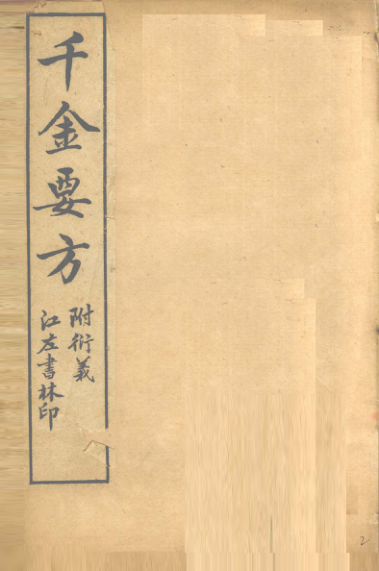 千金要方
附衍義
江左書林印
2